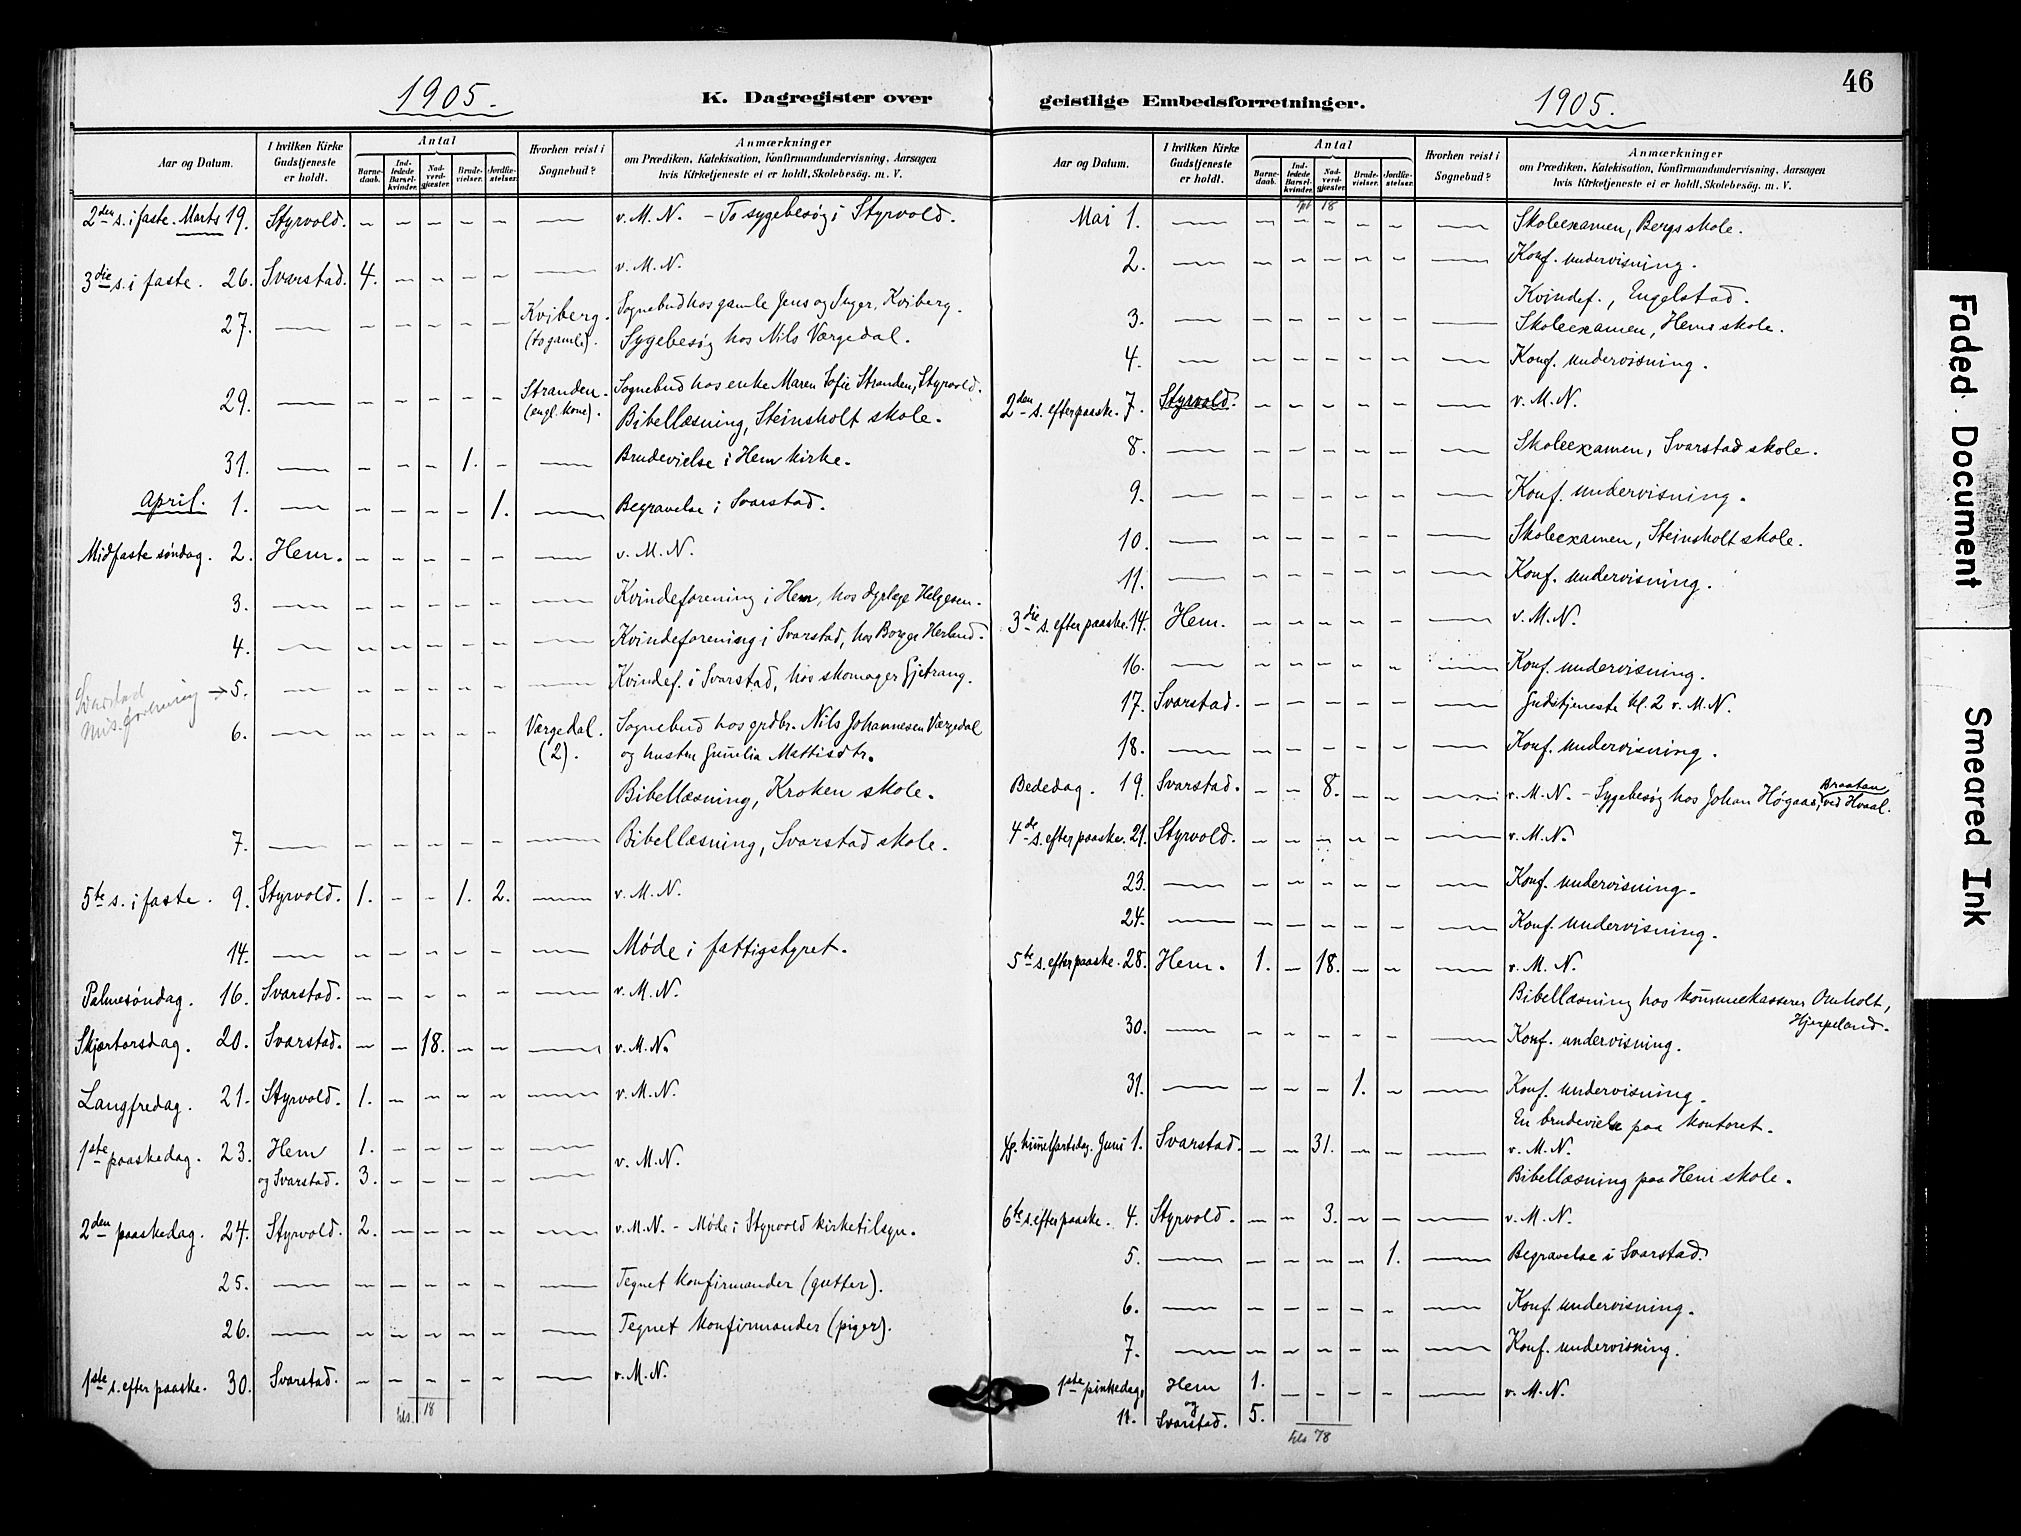 1905.
K. Dagregister over
Aar og Datum.
I hvilken Kirke Gudstjeneste er holdt.
Antal
Barnedaab.
Indledede Barselkvinder.
Nadverdgjæster.
Brudevielser.
Jordfæstelser.
Hvorhen reist i Sognebud?
Anmærkninger
om Prædiken, Katekisation, Konfirmandundervisning, Aarsagen
hvis Kirketjeneste ei er holdt, Skolebesøg. m. V.
2den s. i faste. Marts 19. Styrvold. – – – – – — v. M. N. – To sygebesøg i Styrvold.
3die s. i faste. 26. Svarstad. 4. – – – – — v. M. N.
27. — – – – – – Kviberg. Sognebud hos gamle Jens og Inger Kviberg.
(to gamle). Sygebesøg hos Nils Værgedal.
29. — – – – – – Stranden. Sognebud hos enke Maren Sofie Stranden, Styrvold.
Bibellæsning, Steinsholt skole.
31. — – – – 1. – — Brudevielse i Hem kirke.
April. 1. — – – – – 1. — Begravelse i Svarstad.
Midfaste søndag. 2. Hem. – – – – – — v. M. N.
3. — – – – – – — Kvindeforening i Hem, hos dyrlæge Helgesen.
4. — – – – – – — Kvindeforening i Svarstad, hos Borge Herland.
Svarstad
Mis.forening → 5. — – – – – – — Kvindef. i Svarstad, hos skomager Gjetrang.
6. — – – – – – Værgedal. Sognebud hos grdbr. Nils Johannesen Værgedal
(2). og hustru Gunilia Mattisdtr.
Bibellæsning, Kroken skole.
7. — – – – – – — Bibellæsning, Svarstad skole.
5te s. i faste. 9. Styrvold. 1. – – 1. 2. — v. M. N.
14. — – – – – – — Møde i fattigstyret.
Palmesøndag. 16. Svarstad. – – – – – — v. M. N.
Skjærtorsdag. 20. Svarstad. – – 18. – – — v. M. N.
Langfredag. 21. Styrvold. 1. – – – – — v. M. N.
1ste paaskedag. 23. Hem 1. – – – – — v. M. N.
og Svarstad. 3. – – – – —
2den paaskedag. 24. Styrvold. 2. – – – – — v. M. N. – Møde i Styrvold kirketilsyn.
25. — – – – – – — Tegnet konfirmander (gutter).
26. — – – – – – — Tegnet konfirmander (piger).
1ste s. efter paaske. 30. Svarstad. – – – – – — v. M. N.
tils. 18
geistlige Embedsforretninger.
1905.
46
Aar og Datum.
I hvilken Kirke Gudstjeneste er holdt.
Antal
Barnedaab.
Indledede Barselkvinder.
Nadverdgjæster.
Brudevielser.
Jordfæstelser.
Hvorhen reist i Sognebud?
Anmærkninger
om Prædiken, Katekisation, Konfirmandundervisning, Aarsagen
hvis Kirketjeneste ei er holdt, Skolebesøg. m. V.
18
Mai 1. — – – – – – — Skoleexamen, Bergs skole.
2. — – – – – – — Konf. undervisning.
Kvindef., Engelstad.
3. — – – – – – — Skoleexamen, Hems skole.
4. — – – – – – — Konf. undervisning.
2den s. efter paaske. 7. Styrvold. – – – – – — v. M. N.
8. — – – – – – — Skoleexamen, Svarstad skole.
9. — – – – – – — Konf. undervisning.
10. — – – – – – — Skoleexamen, Steinsholt skole.
11. — – – – – – — Konf. undervisning.
3die s. efter paaske. 14. Hem. – – – – – — v. M. N.
16. — – – – – – — Konf. undervisning.
17. Svarstad. – – – – – — Gudstjeneste kl. 2 v. M. N.
18. — – – – – – — Konf. undervisning.
Bededag. 19. Svarstad. – – 8. – – — v. M. N. – Sygebesøg hos Johan Høgaas, Braatan, ved Hvaal.
4de s. efter paaske. 21. Styrvold. – – – – – — v. M. N.
23. — – – – – – — Konf. undervisning.
24. — – – – – – — Konf. undervisning.
5te s. efter paaske. 28. Hem. 1. – 18. – – — v. M. N.
Bibellæsning hos kommunekasserer Omholt,
Hjerpeland.
30. — – – – – – — Konf. undervisning.
31. — – – – 1. – — Konf. undervisning.
En brudevielse paa kontoret.
himmelfartsdag. Juni 1. Svarstad. – – 31. – – — v. M. N.
Bibellæsning paa Hem skole.
6te s. efter paaske. 4. Styrvold. – – 3. – – — v. M. N.
5. — – – – – 1. — Begravelse i Svarstad.
6. — – – – – – — Konf. undervisning.
7. — – – – – – — Konf. undervisning.
1ste pinsedag, Hem 1. – – – – — v. M. N.
11. og Svarstad. 5.
tils 78
Faded Document
Smeared Ink